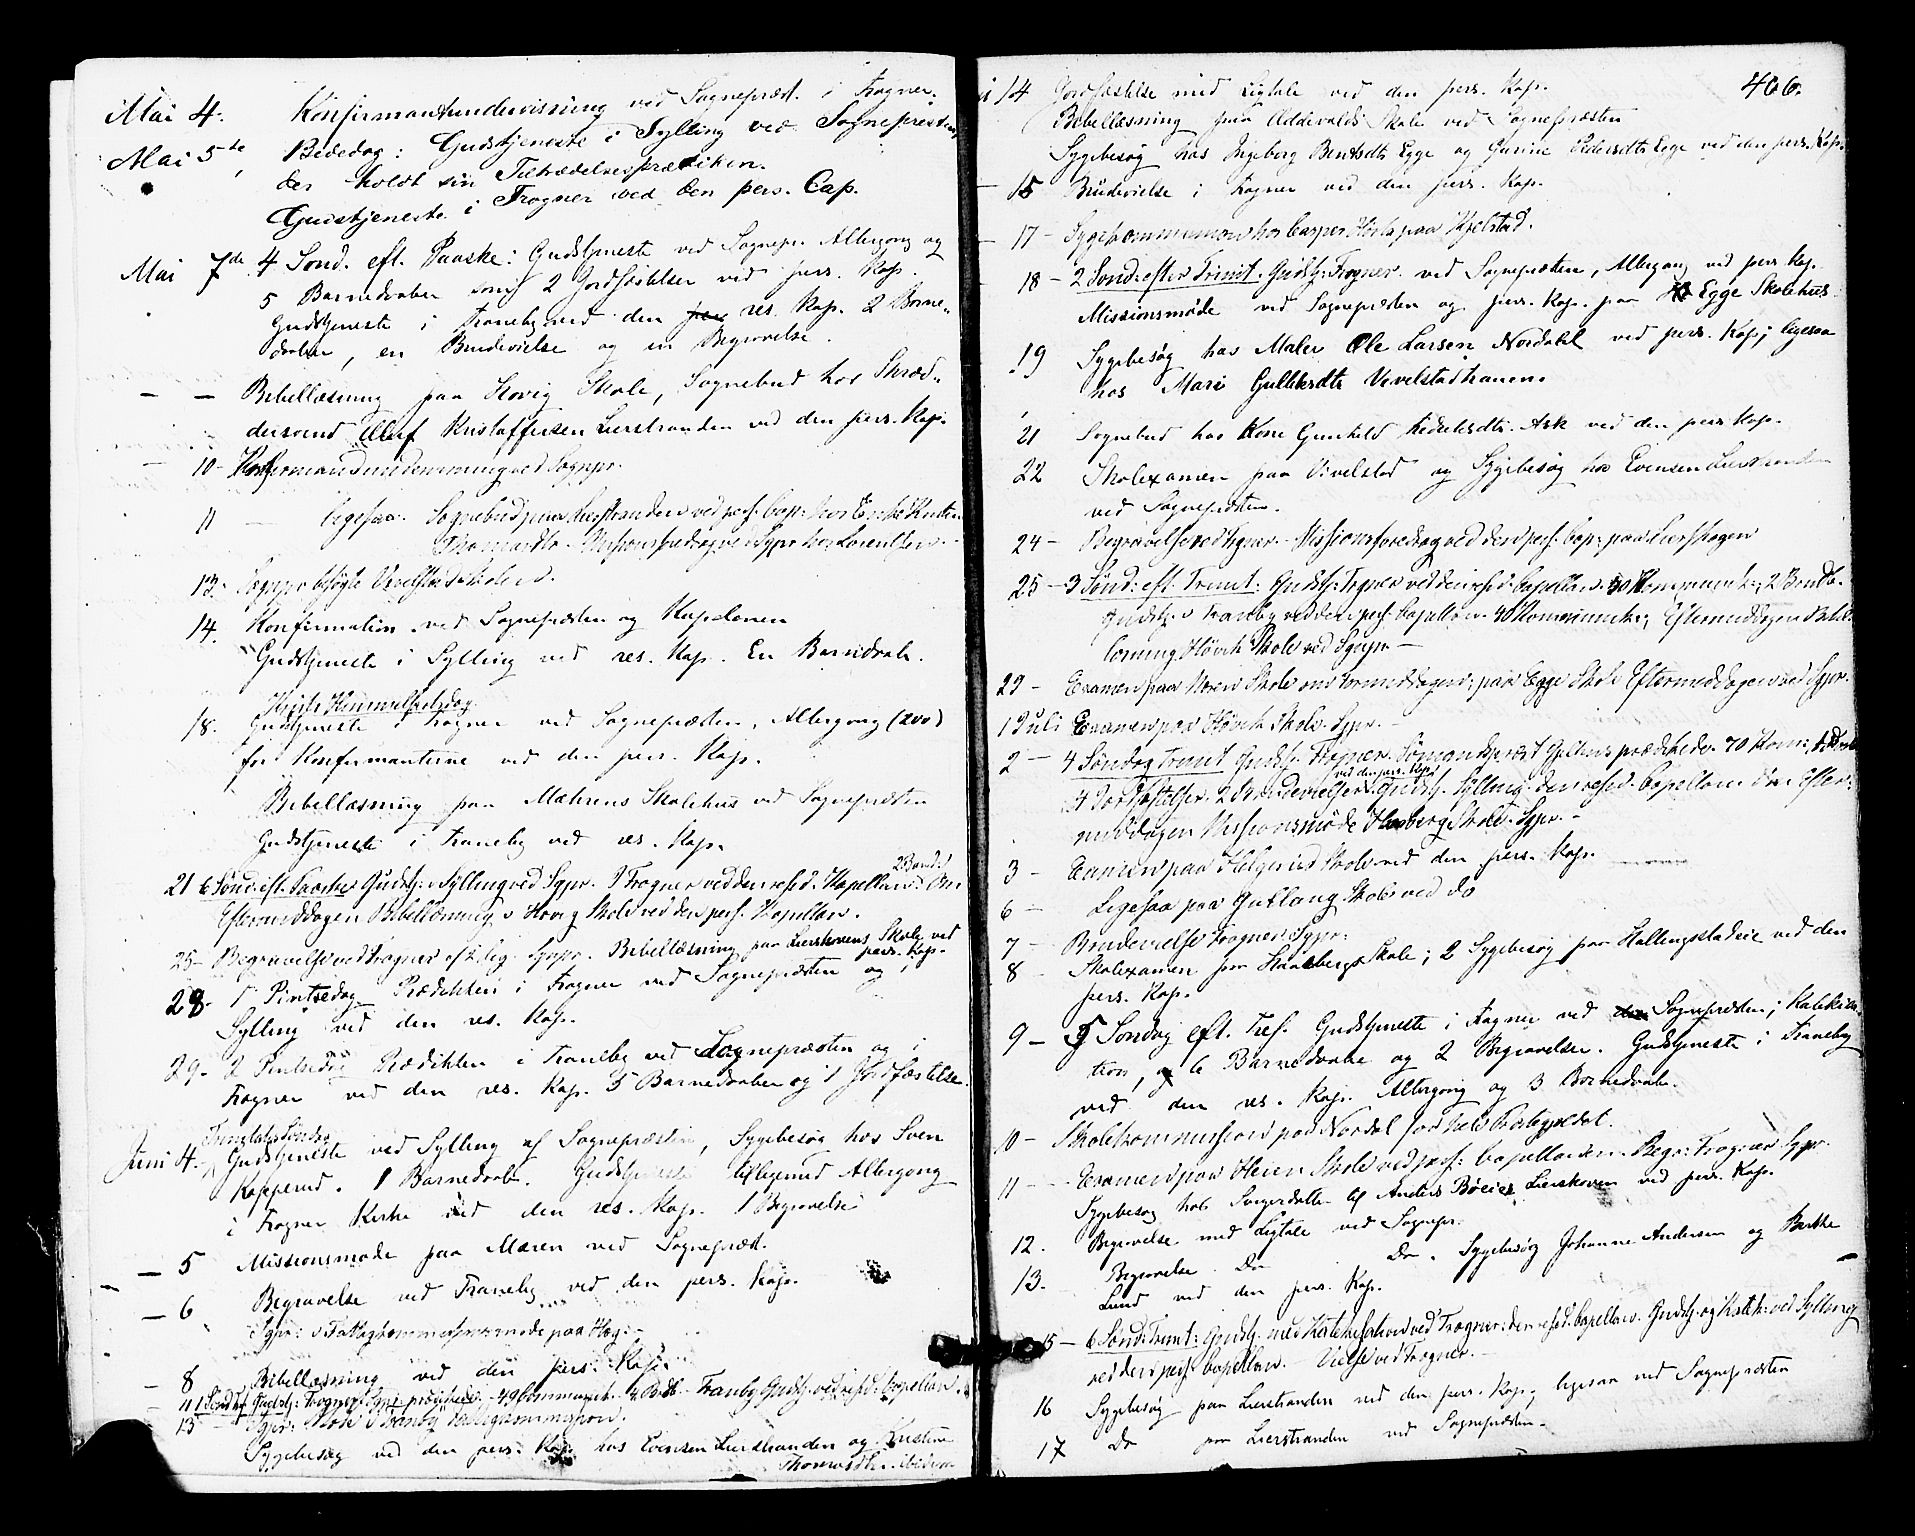 Mai 4. Konfirmantundervisning ved Sognepræst. i Frogner.
Mai 5te, Bededag: Gudstjeneste i Sylling ved Sognepresten,
der holdt sin Tiltrædelsesprædiken.
Gudstjeneste i Frogner ved den pers. Cap.
Mai 7de 4 Sønd. eft. Paaske: Gudstjeneste ved Sognepr. Altergang og
5 Barnedaaber samt 2 Jordfæstelser ved pers. Kap.
Gudstjeneste i Tranebg ved den res. Kap. 2 Barne-
daaber, en Brudevielse og en Begravelse.
— — Bibellæsning paa Hovig Skole, Sognebud hos Skræd-
dersvend Ellef Kristoffersen Lierstranden ved den pers. Kap.
— 10 - Konfirmandundervisning ved Sognpr.
11 ligesaa. Sognebud paa Lierstranden ved pers. Cap. hos Enke Knuten
Thomasdtr. - Missionsforedrag ved Sgpr hos Lorentsen. -
13. Sognpr besøgte Vivelstad Skole.
14. Konfirmation ved Sognepræsten og Kapelanen
Gudstjeneste i Sylling ved res. Kap. En Barnedaab.
Kristi Himmelfartsdag
18. Gudstjeneste i Frogner ved Sognepræsten, Altergang (200)
for Konfirmanterne ved den pers. Kap.
Bibellæsning paa Mæhrens Skolehus ved Sognepræsten
Gudstjeneste i Tranebg ved res. Kap.
21 6 Sønd. eft. Paaske Gudstj: i Sylling ved Sgpr. I Frogner ved den resid. Kapellan. 2 Barnd.
Eftermiddagen Bibellæsning i Hovig Skole ved den pers. Kapellan.
25 - Begravelse ved Frogner af 2 lig. Sgnpr. Bibellæsning paa Lierskovens Skole ved
pers. Kap.
28. 1 Pintsedag Prædiken i Frogner ved Sognepræsten og i
Sylling ved den res. Kap.
29. 2 Pintsedag Prædiken i Tranebg ved Sognepræsten og i
Frogner ved den res. Kap. 5 Barnedaaber og 1 Jordfæstelse.
Trinitatis Søndag
Juni 4. Gudstjeneste ved Sylling af Sognepræsten, Sygebesøg hos Sven
Kopperud. 1 Barnedaab. Gudstjeneste tilligemed Altergang
i Frogner Kirke ved den res. Kap. 1 Begravelse
— 5 Missionsmøde paa Mæren ved Sognepræst.
— 6 Begravelse ved Tranebg ved den pers. Kap.
Sgpr: i Fattigkommissionsmøde paa Haeg. -
— 8 Bibellæsning ved den pers. Kap.
11 1 Sønd. Gudstj: Frogner Sgpr prædikede. - 49 Communik. - 4 Bd. - Tranby Gudstj. ved resid. Capellan.
13 - Sgpr: Møde i Tranby Fattigkommission.
Sygebesøg ved den pers. Kap. hos Evensen Lierstranden og Kristine
Thomasdtr. ibidem

406.
14 Jordfæstelse med Ligtale ved den pers. Kap.
Bibellæsning paa Oddevalds Skole ved Sognepræsten
Sygebesøg hos Ingeborg Berntsdtr Egge og Gunine Pedersdtr Egge ved den pers. Kap.
— 15 Brudevielse i Frogner ved den pers. Kap.
— 17 - Sygekommunion hos Casper Hørta paa Kjelstad.
18 - 2 Sønd: efter Trinit. Gudstj: Frogner ved Sognepræsten, Altergang ved pers Kap.
Missionsmøde ved Sognepræsten og pers. Kap. paa Egge Skolehus.
19 Sygebesøg hos Maler Ole Larsen Nordahl ved pers. Kap; ligesaa
hos Mari Gulliksdtr Vivelstadhaugen.
21 Sognebud hos Kone Gunhild Kittelsdtr. Ask ved den pers Kap.
22 Skolexamen paa Vivelstad og Sygebesøg hos Evensen Lierstranden
ved Sognepræsten.
24 - Begravelse ved Frgner. - Missionsforedrag ved den pers. Cap: paa Lierskogen
25 - 3 Sønd: eft. Trinit: Gudstj: Frgner ved den resid: Capellan. 30 Kommunik:, 2 Barndb.
Gudstj. i Tranby ved den pers. Capellan. 40 Kommunik:; Eftermiddagen Bibel-
læsning Høvik Skole ved Sgnpr -
29 - Examen paa Meren Skole om Formiddagen; paa Egge Skole Eftermiddagen ved Sgpr.
1 Juli Examen paa Høvik Skole. Sgpr. -
2 - 4 Søndag Trinit Gudstj. Frogner. Sømandsprest Gjelhus prædikede. 70 Kom:,
4 Jordfæstelser. 2 Brudevielser ved den pers. Kap. Gudstj. Sylling den resid. Capellan. Om Efter-
middagen Missionsmøde Hasberg Skole. Sgpr. -
3 - Examen paa Helgerud Skole ved den pers. Kap.
6 - Ligesaa paa Gullaug Skole ved do
7 - Brudevielse Frogner Sgpr.
8 - Skolexamen paa Haabergs Skole; 2 Sygebesøg paa Hallingstadeie ved den
pers. Kap.
9 - 5 Søndag eft. Tref. Gudstjeneste i Frogner ved Sognepræsten; Katekisa-
tion, 6 Barnedaabe og 2 Begravelser. Gudstjeneste i Tranebg
ved den res. Kap. Altergang og 3 Barnedaab.
10 - Skolekommission paa Nordal for hele Præstegjeldet.
11 - Examen paa Heien Skole ved pers: Capellanen. Begr: Frogner Sgpr.
Sygebesøg hos Svigerdatter af Anders Bøeies Lierskoven ved pers. Kap.
12. Begravelse med Ligtale ved Sognepr.
13. Begravelse Do Do. Sygebesøg Johanne Andersen og Berthe
Lund ved den pers. Kap.
15 - 6 Sønd: Trinit: Gudstj. med Katekisation ved Frogner: den resid. Capellan. Gudstj. og Katek: ved Sylling
ved den pers. Capellan. - Vielse ved Frogner. -
16 Sygebesøg paa Lierstranden ved den pers. Kap; ligesaa ved Sognepræsten
17 Do paa Lierstranden ved Sognepræsten. -